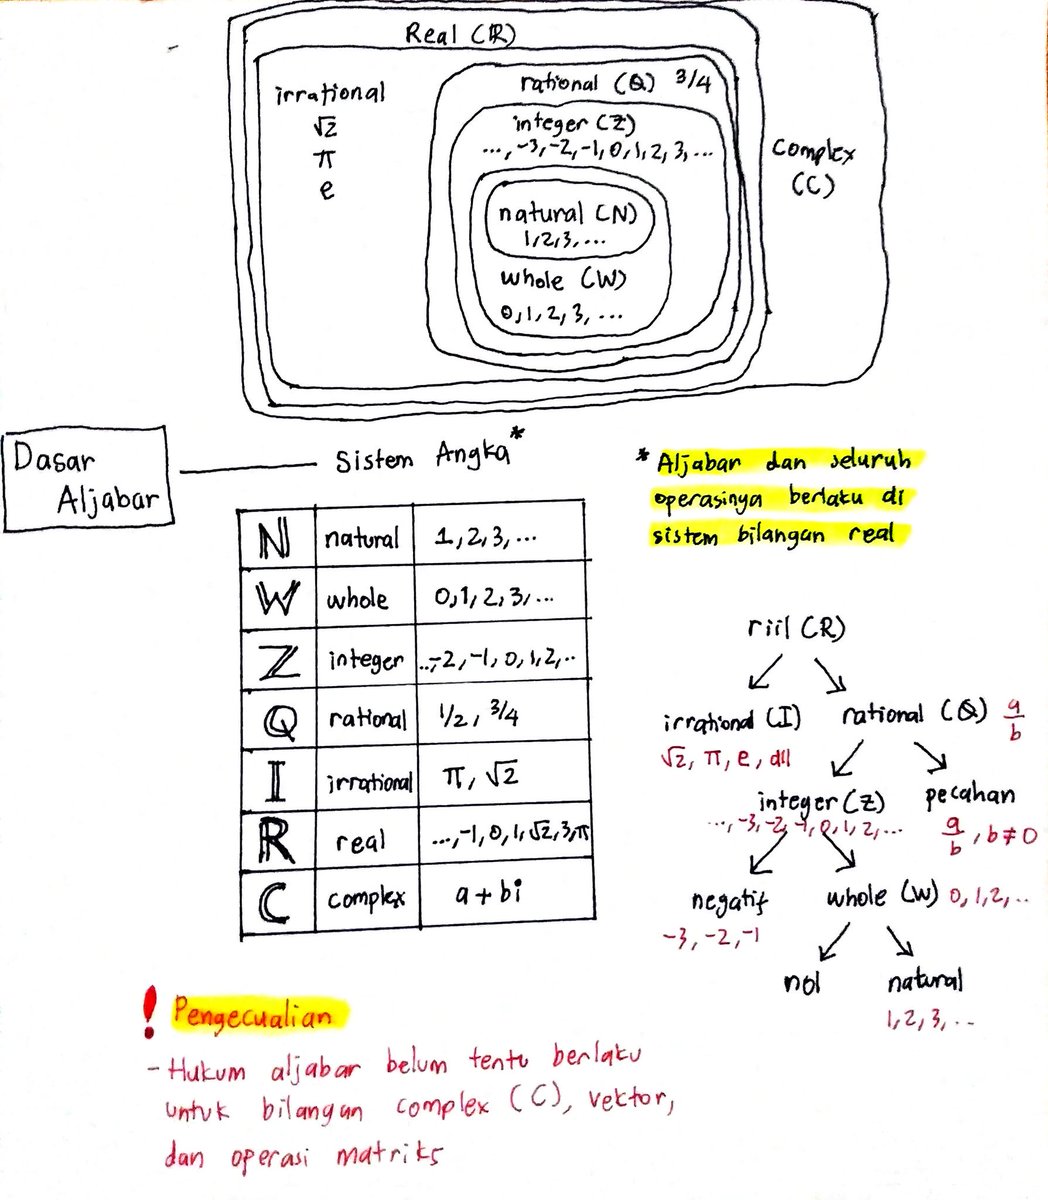 Real (ℝ)
irrational
√2
π
e
rational (Q) 3/4
integer (Z)
..., -3, -2, -1, 0, 1, 2, 3, ...
natural (N)
1, 2, 3, ...
whole (W)
0, 1, 2, 3, ...
Complex
(C)
Dasar
Aljabar
Sistem Angka*
N natural 1, 2, 3, ...
W whole 0, 1, 2, 3, ...
Z integer ..,-2, -1, 0, 1, 2, ..
Q rational 1/2, 3/4
I irrational π, √2
R real ..., -1, 0, 1, √2, 3, π
C complex a + bi
* Aljabar dan seluruh
operasinya berlaku di
sistem bilangan real
riil (R)
irrational (I)
√2, π, e, dll
rational (Q) a/b
integer (Z)
..., -3, -2, -1, 0, 1, 2, ...
pecahan
a/b, b ≠ 0
negatif
-3, -2, -1
whole (W) 0, 1, 2, ..
nol
natural
1, 2, 3, ...
! Pengecualian
- Hukum aljabar belum tentu berlaku
untuk bilangan complex (C), vektor,
dan operasi matriks